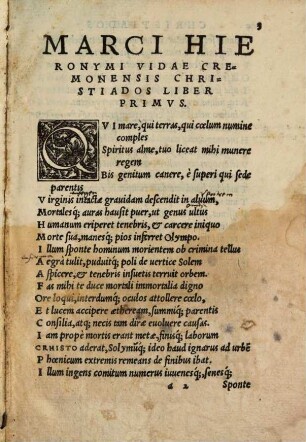 3
MARCI HIE
RONYMI VIDAE CRE-
MONENSIS CHRI-
STIADOS LIBER
PRIMVS.
QVI mare, qui terras, qui cœlum numine
comples
Spiritus alme, tuo liceat mihi munere
regem
Bis genitum canere, è superi qui sede
parentis
Virginis intactæ grauidam descendit in aluum,
Mortalesq; auras hausit puer, ut genus ultus
Humanum eriperet tenebris, & carcere iniquo
Morte sua, manesq; pios inferret Olympo.
Illum sponte hominum morientem ob crimina tellus
Aegra tulit, puduitq; poli de uertice Solem
Aspicere, & tenebris insuetis terruit orbem.
Fas mihi te duce mortali immortalia digno
Ore loqui, interdumq; oculos attollere cœlo,
Et lucem accipere ætheream, summiq; parentis
Consilia, atq; necis tam diræ euoluere causas.
Iam propè mortis erant metæ, finisq; laborum
CRHISTO aderat, Solymûq; ideo haud ignarus ad urbē
Phœnicum extremis remeans de finibus ibat.
Illum ingens comitum numerus iuuenesq;, senesq;
a 2 Sponte